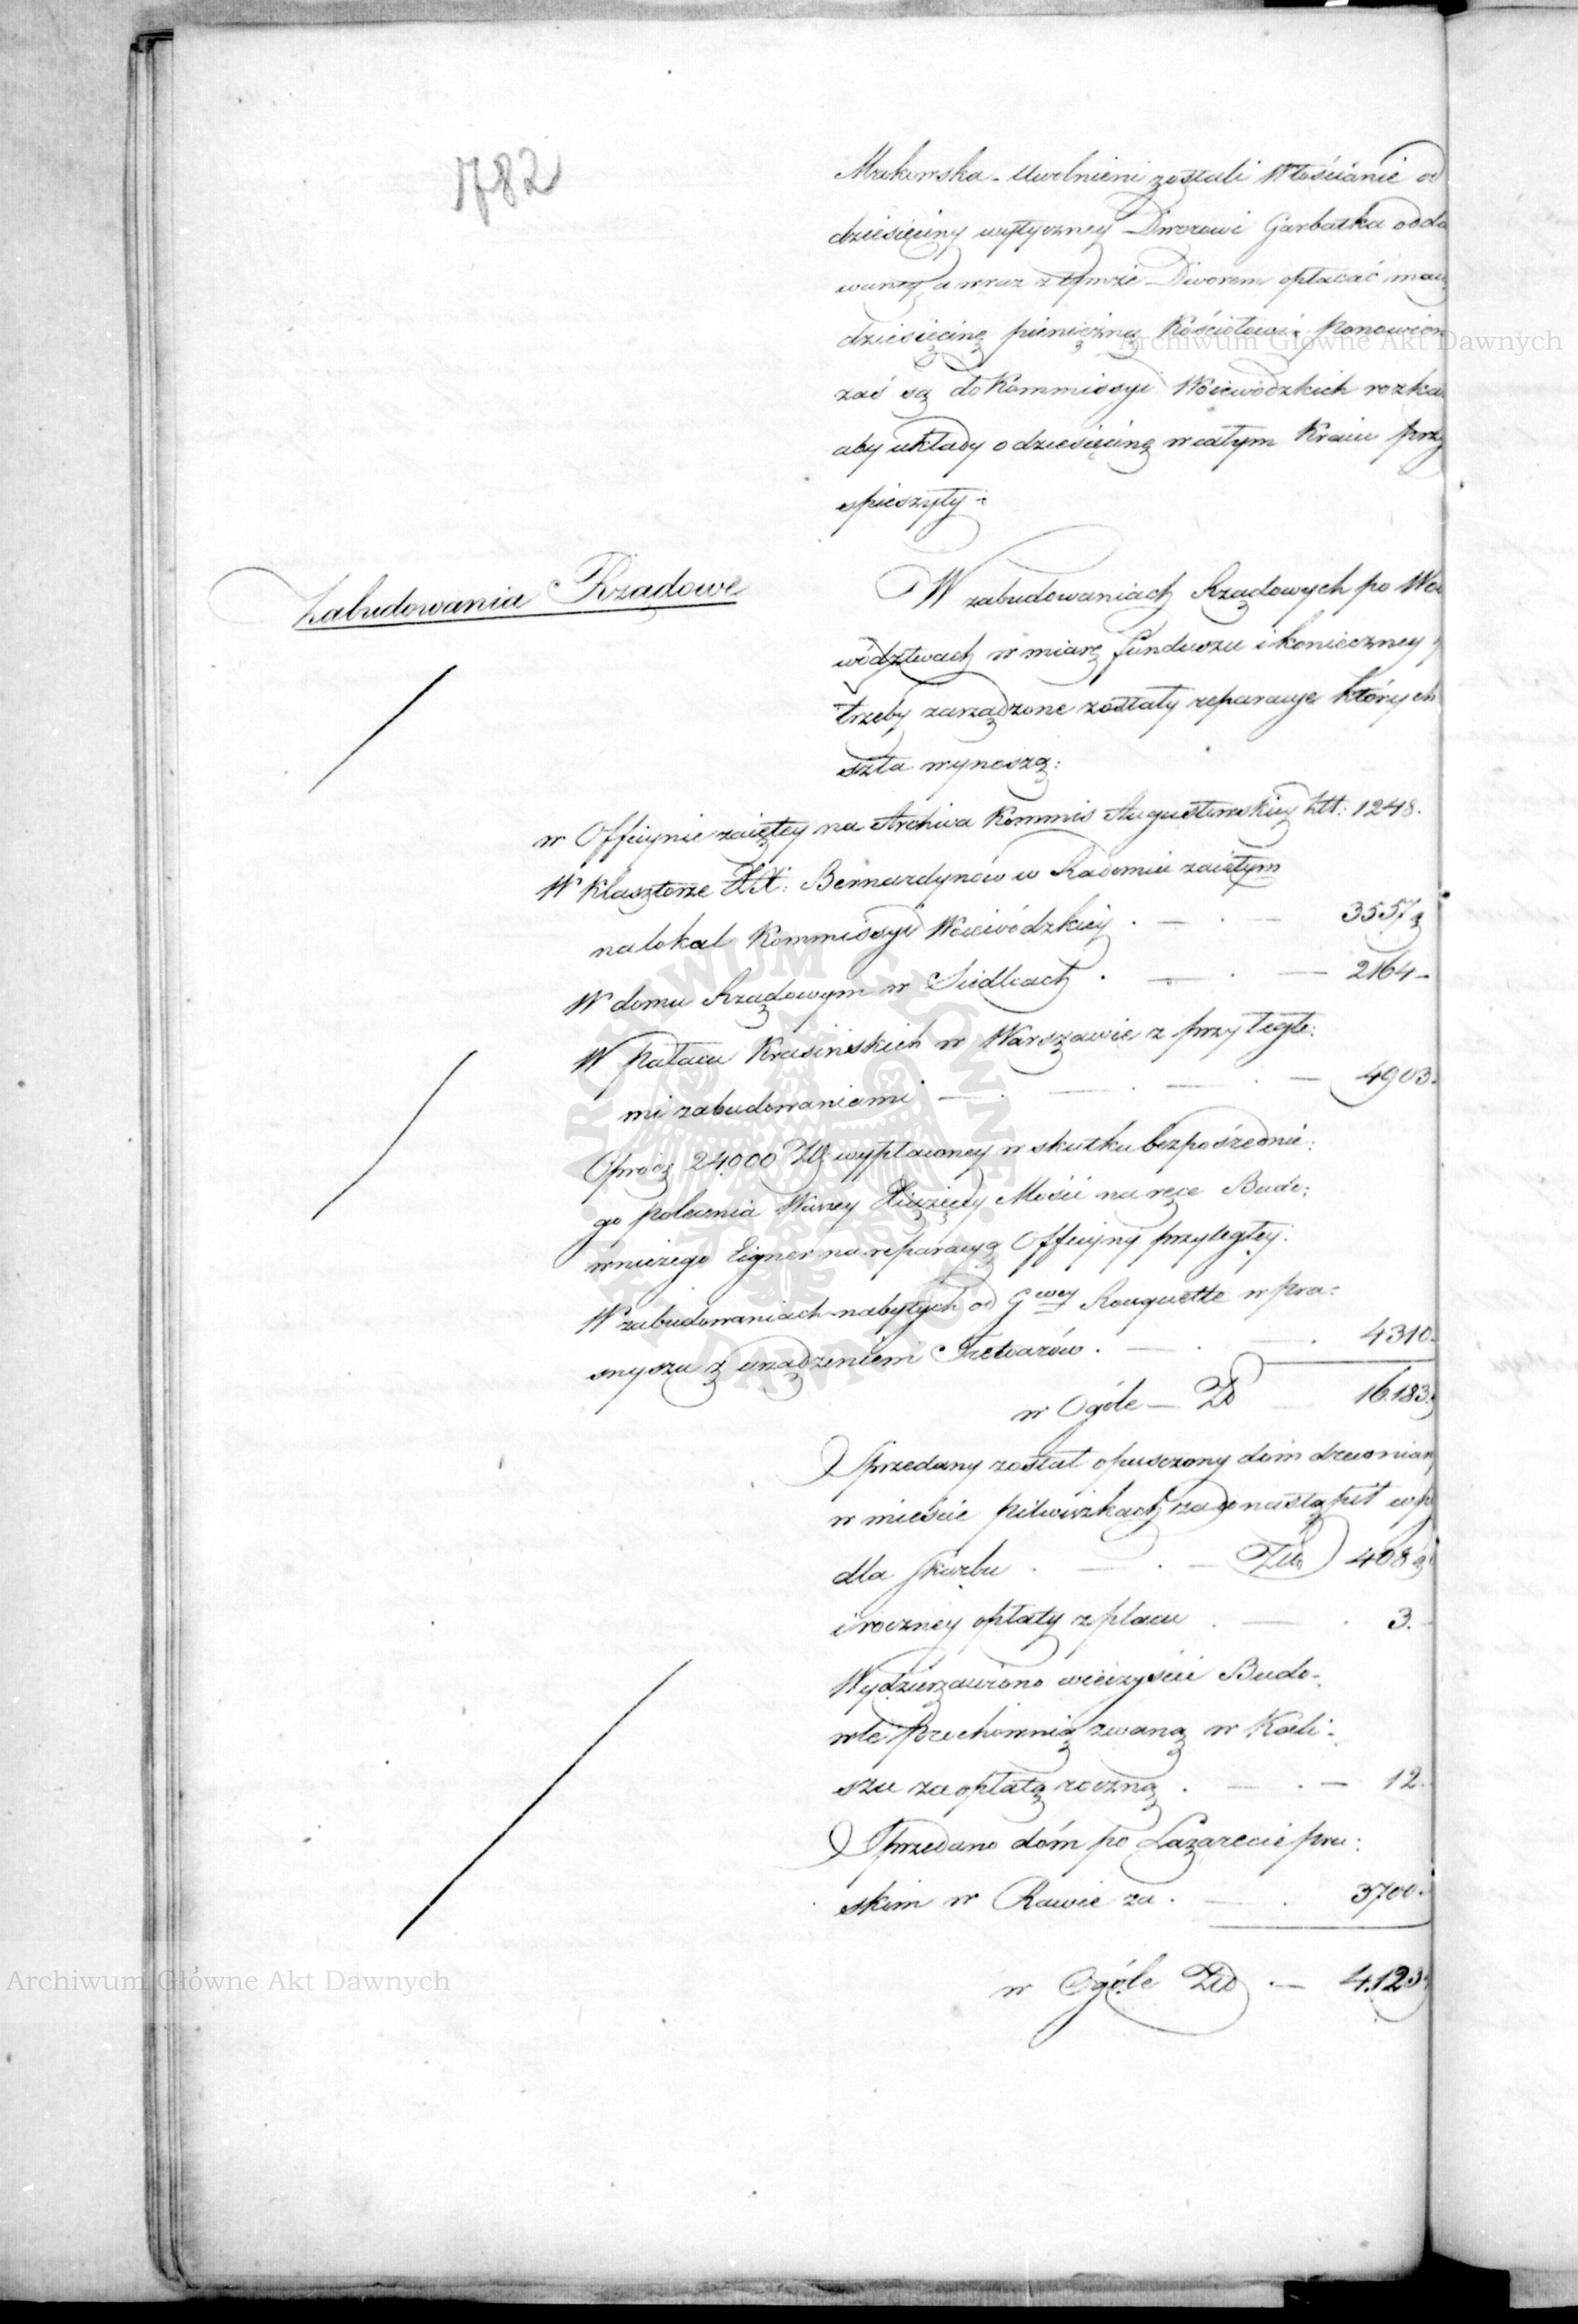 782
Makowska. Uwolnieni zostali Włościanie od
dziesięciny wytyczney Dworowi Garbatka odda
waney, a wraz z tymże Dworem opłacać maią
dziesięcinę pieniężną Kościołowi. Ponowion
zaś są do Kommissyi Woiewódzkich rozka
aby układy o dziesięcinę w całym Kraiu przy
spieszyły.
Zabudowania Rządowe
W zabudowaniach Rządowych po Woie
wództwach w miarę funduszu i konieczney
trzeby zarządzone zostały reparacye których
szta wynoszą:
w Officynie zaiętey na Archiwa Kommis Augustowskiey Złł: 1248.
W Klasztorze XX: Bernardynów w Radomiu zaiętym
na lokal Kommissyi Woiewódzkiey . — . — 3557
W domu Rządowym w Siedlcach . — . — 2164 -
W Pałacu Krasińskich w Warszawie z przyległe:
mi zabudowaniami — . — . — 4903.
Oprócz 24000 Złł wypłaconey w skutku bezpośrednie:
go polecenia Waszey Xiążęcy Mości na ręce Budo:
wniczego Eigner na reparacyą Officyny przyległey.
W zabudowaniach nabytych od Gwey Rouquette w Pra:
snyszu z urządzeniem Tretoarów . — . — . 4310.
w Ogóle — Złł — 16183
Sprzedany został opuszczony dóm drewnian
w mieście Pilwiszkach, za co nastąpił wp
dla Skarbu . — . — Złł 408
i roczney opłaty z placu . — . 3. -
Wydzierzawiono wieczyście Budo-
wlę Prochownią zwaną w Kali-
szu za opłatą roczną . — . — 12.
Sprzedano dóm po Lazarecie pru:
skim w Rawie za . — . 3700.
w Ogóle Złł . — 4123
Archiwum Główne Akt Dawnych
Archiwum Główne Akt Dawnych
ARCHIWUM GŁÓWNE AKT DAWNYCH